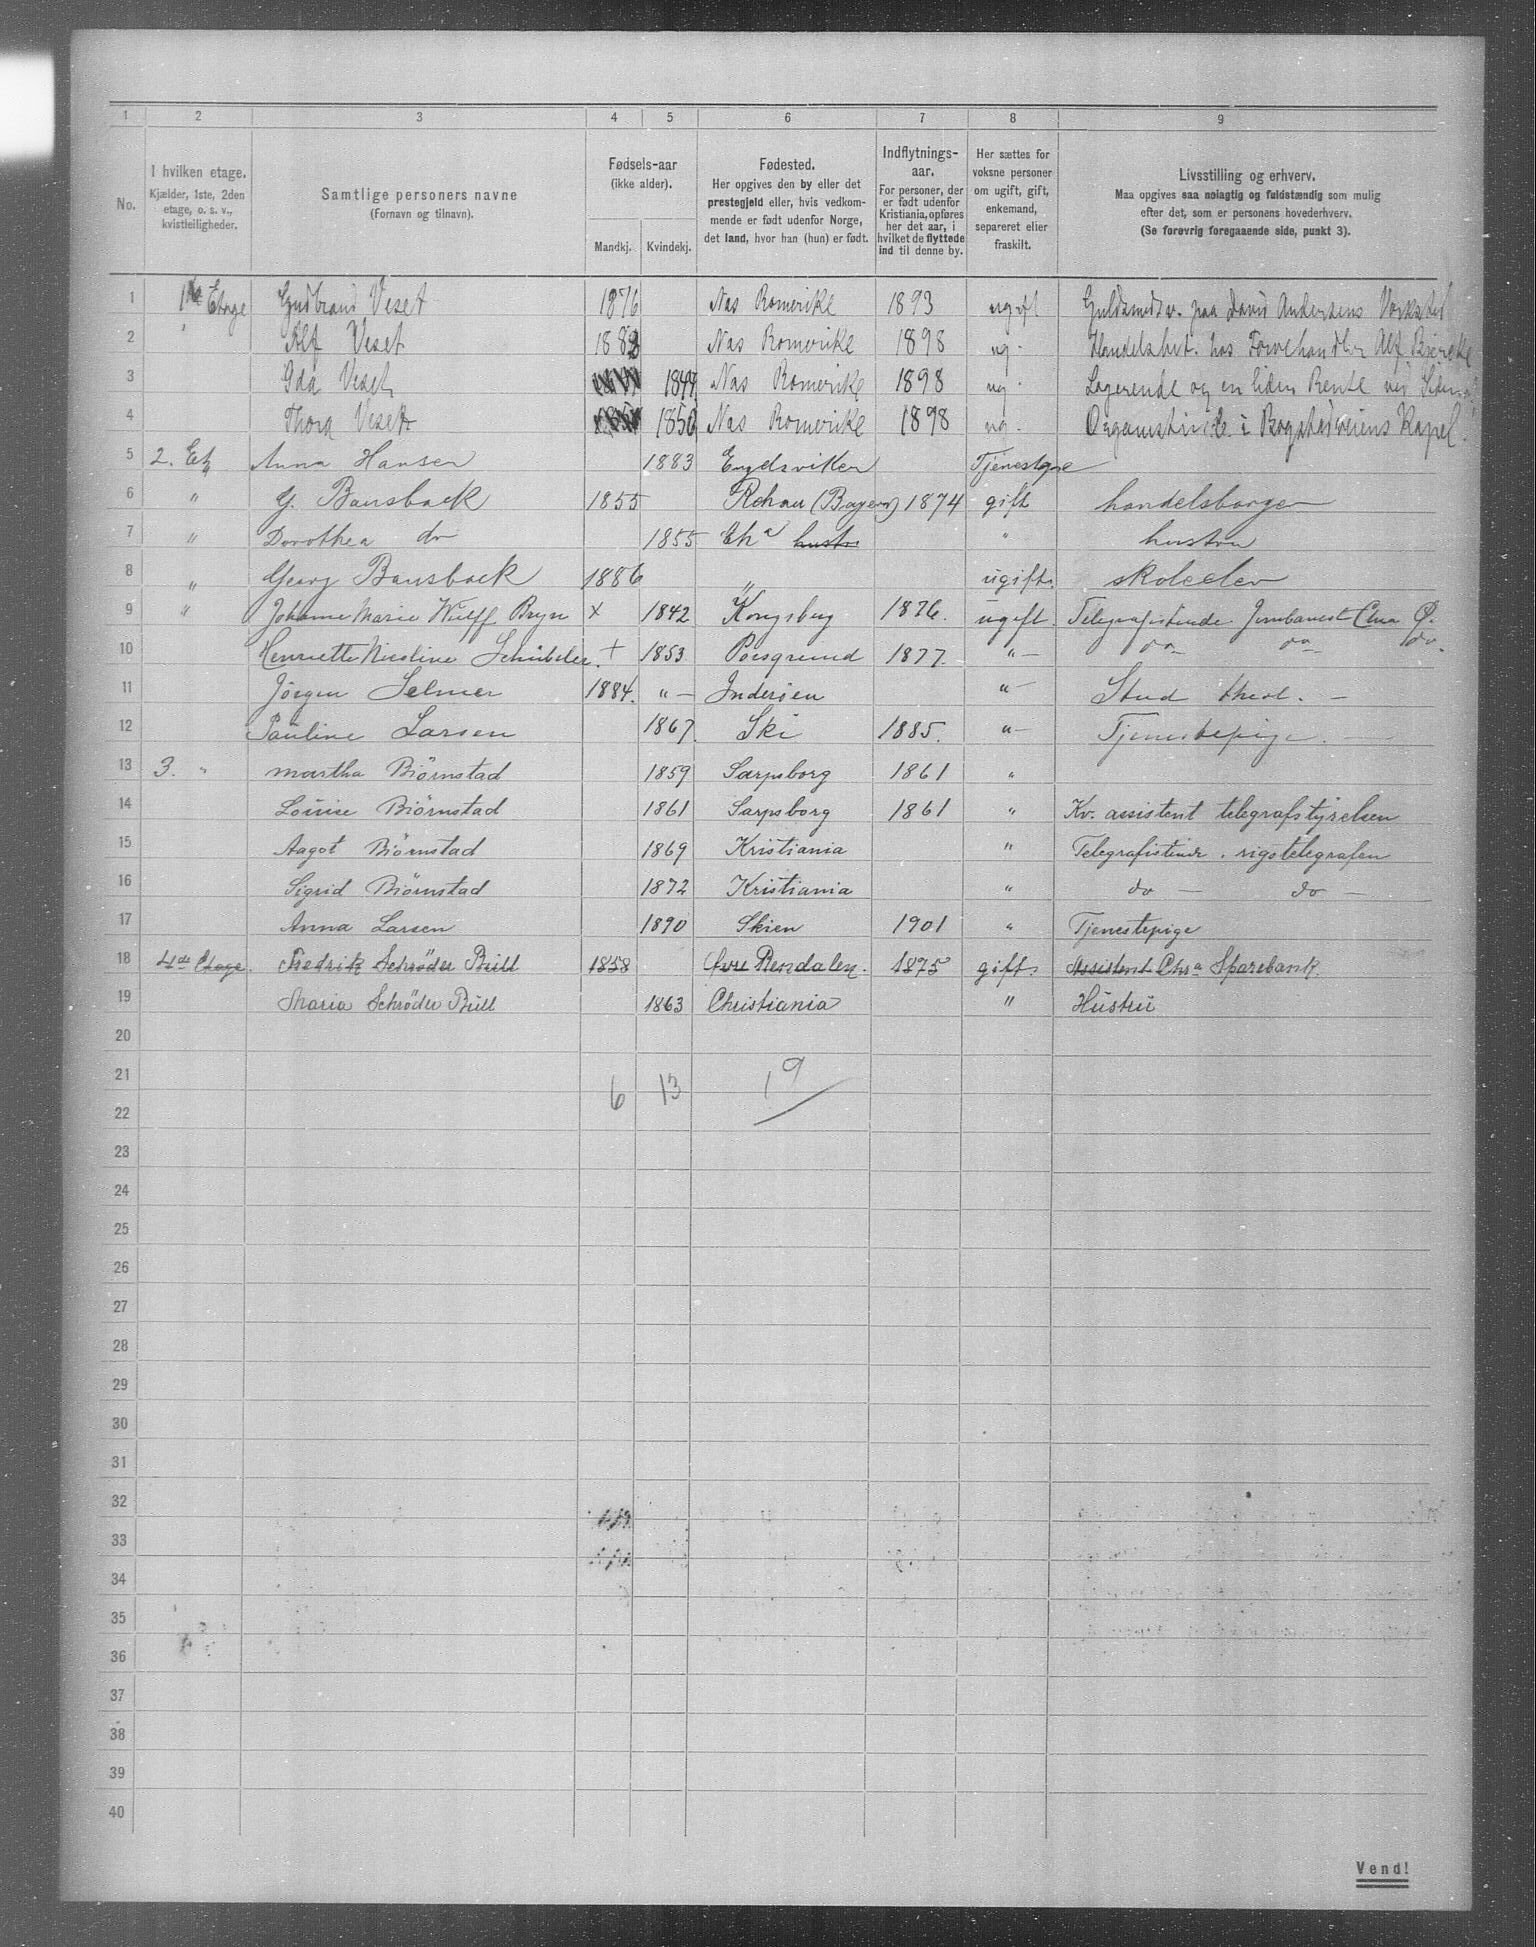 1 2 3 4 5 6 7 8 9
No.
I hvilken etage.
Kjælder, 1ste, 2den
etage, o. s. v.,
kvistleiligheder.
Samtlige personers navne
(Fornavn og tilnavn).
Fødsels-aar
(ikke alder).
Mandkj. Kvindekj.
Fødested.
Her opgives den by eller det
prestegjeld eller, hvis vedkom-
mende er født udenfor Norge,
det land, hvor han (hun) er født.
Indflytnings-
aar.
For personer, der
er født udenfor
Kristiania, opføres
her det aar, i
hvilket de flyttede
ind til denne by.
Her sættes for
voksne personer
om ugift, gift,
enkemand,
separeret eller
fraskilt.
Livsstilling og erhverv.
Maa opgives saa nøiagtig og fuldstændig som mulig
efter det, som er personens hovederhverv.
(Se forøvrig foregaaende side, punkt 3).
1 1ste Etage Gudbrand Veset 1876 Nas Romerike 1893 ugift Guldsmedsv. paa David Andersens Værksted
2 " Alf Veset 1882 Nas Romerike 1898 ug. Handelsbet. hos Farvehandler Alf Bjercke
3 Ida Veset 1844 Nas Romerike 1898 ug. Logerende og en liden Rente ved
4 Thora Veset 1850 Nas Romerike 1898 ug. Organistinde i Bogstadveiens Kapel.
5 2. Etg Anna Hansen 1883 Engelsviken Tjenestepe
6 " G. Bansback 1855 Rehau (Bayern) 1874 gift handelsborger
7 " Dorothea do 1855 Cha hustr " hustru
8 " Georg Bansback 1886 " ugift. skoleelev
9 " Johanne Marie Wulff Bryn x 1842 Kongsberg 1876. ugift. Telegrafistinde Jernbanest Chra Ø.
10 Henriette Nicoline Schübeler. + 1853 Porsgrund 1877. " – do – do – do.
11 Jörgen Selmer 1884. " – Inderöen " – Stud theol. –
12 Pauline Larsen 1867. Ski 1885. " – Tjenestepige. –
13 3. " Martha Biörnstad 1859 Sarpsborg 1861 "
14 Louise Biörnstad 1861 Sarpsborg 1861 " Kv. assistent telegrafstyrelsen
15 Aagot Biörnstad 1869 Kristiania " Telegrafistinde. rigstelegrafen
16 Sigrid Biörnstad 1872 Kristiania " do – do –
17 Anna Larsen 1890 Skien 1901 " Tjenestepige
18 4de Etage. Fredrik Schröder Bull 1858 Øvre Rendalen. 1875 gift. Assistent Chra Sparebank.
19 Maria Schröder Bull 1863 Christiania " Hustru
20
21 6 13 19
22
23
24
25
26
27
28
29
30
31
32
33
34
35
36
37
38
39
40
Vend!